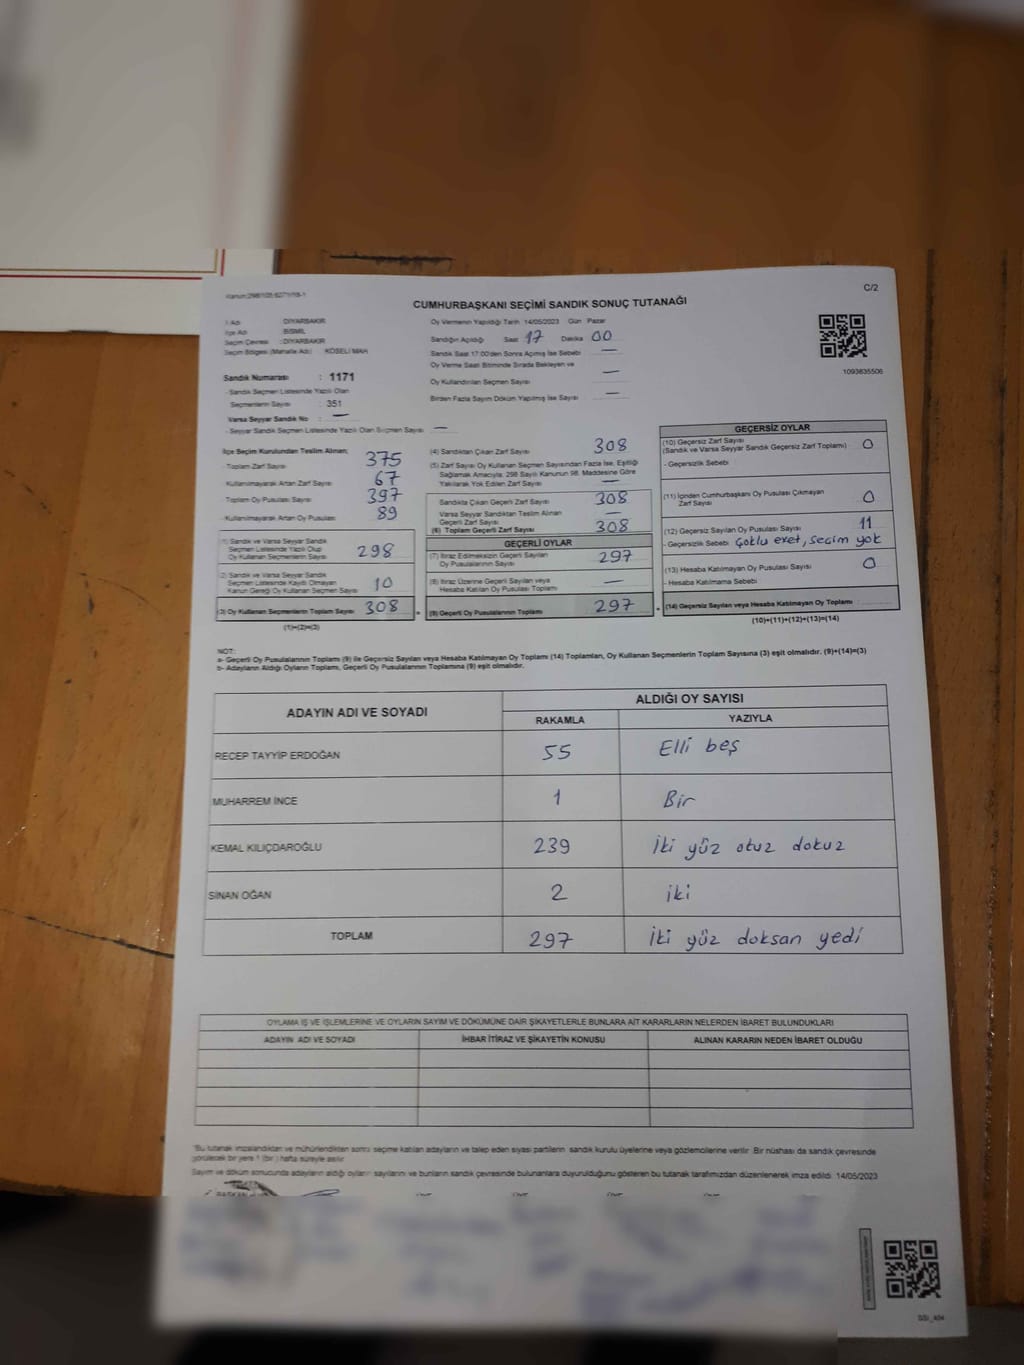 C/2
CUMHURBAŞKANI SEÇİMİ SANDIK SONUÇ TUTANAĞI
1093835506
İl Adı : DİYARBAKIR
İlçe Adı : BİSMİL
Seçim Çevresi : DİYARBAKIR
Seçim Bölgesi (Mahalle Adı) : KÖSELİ MAH
Sandık Numarası : 1171
- Sandık Seçmen Listesinde Yazılı Olan
Seçmenlerin Sayısı : 351
Varsa Seyyar Sandık No : —
- Seyyar Sandık Seçmen Listesinde Yazılı Olan Seçmen Sayısı : —
Oy Vermenin Yapıldığı Tarih 14/05/2023 Gün Pazar
Sandığın Açıldığı Saat 17 Dakika 00
Sandık Saat 17:00'den Sonra Açılmış İse Sebebi —
Oy Verme Saati Bitiminde Sırada Bekleyen ve
Oy Kullandırılan Seçmen Sayısı —
Birden Fazla Sayım Döküm Yapılmış İse Sayısı —
İlçe Seçim Kurulundan Teslim Alınan;
- Toplam Zarf Sayısı 375
- Kullanılmayarak Artan Zarf Sayısı 67
- Toplam Oy Pusulası Sayısı 397
- Kullanılmayarak Artan Oy Pusulası 89
(1) Sandık ve Varsa Seyyar Sandık
Seçmen Listesinde Yazılı Olup
Oy Kullanan Seçmenlerin Sayısı 298
(2) Sandık ve Varsa Seyyar Sandık
Seçmen Listesinde Kaydı Olmayan
Kanun Gereği Oy Kullanan Seçmen Sayısı 10
(3) Oy Kullanan Seçmenlerin Toplam Sayısı 308
(1)+(2)=(3)
(4) Sandıktan Çıkan Zarf Sayısı 308
(5) Zarf Sayısı Oy Kullanan Seçmen Sayısından Fazla İse, Eşitliği
Sağlamak Amacıyla, 298 Sayılı Kanunun 98. Maddesine Göre
Yakılarak Yok Edilen Zarf Sayısı —
Sandıkta Çıkan Geçerli Zarf Sayısı 308
Varsa Seyyar Sandıktan Teslim Alınan
Geçerli Zarf Sayısı —
(6) Toplam Geçerli Zarf Sayısı 308
GEÇERLİ OYLAR
(7) İtiraz Edilmeksizin Geçerli Sayılan
Oy Pusulasının Sayısı 297
(8) İtiraz Üzerine Geçerli Sayılan veya
Hesaba Katılan Oy Pusulası Sayısı —
(9) Geçerli Oy Pusulalarının Toplamı 297
GEÇERSİZ OYLAR
(10) Geçersiz Zarf Sayısı
(Sandık ve Varsa Seyyar Sandık Geçersiz Zarf Toplamı) 0
- Geçersizlik Sebebi
(11) İçinden Cumhurbaşkanı Oy Pusulası Çıkmayan
Zarf Sayısı 0
(12) Geçersiz Sayılan Oy Pusulası Sayısı 11
- Geçersizlik Sebebi Çoklu evet, seçim yok
(13) Hesaba Katılmayan Oy Pusulası Sayısı 0
- Hesaba Katılmama Sebebi
(14) Geçersiz Sayılan veya Hesaba Katılmayan Oy Toplamı :
(10)+(11)+(12)+(13)=(14)
NOT:
a- Geçerli Oy Pusulalarının Toplamı (9) ile Geçersiz Sayılan veya Hesaba Katılmayan Oy Toplamı (14) Toplamları, Oy Kullanan Seçmenlerin Toplam Sayısına (3) eşit olmalıdır. (9)+(14)=(3)
b- Adayların Aldığı Oyların Toplamı, Geçerli Oy Pusulalarının Toplamına (9) eşit olmalıdır.
ADAYIN ADI VE SOYADI ALDIĞI OY SAYISI
RAKAMLA YAZIYLA
RECEP TAYYİP ERDOĞAN 55 Elli beş
MUHARREM İNCE 1 Bir
KEMAL KILIÇDAROĞLU 239 İki yüz otuz dokuz
SİNAN OĞAN 2 iki
TOPLAM 297 İki yüz doksan yedi
OYLAMA İŞ VE İŞLEMLERİNE VE OYLARIN SAYIM VE DÖKÜMÜNE DAİR ŞİKAYETLERLE BUNLARA AİT KARARLARIN NELERDEN İBARET BULUNDUKLARI
ADAYIN ADI VE SOYADI İHBAR İTİRAZ VE ŞİKAYETİN KONUSU ALINAN KARARIN NEDEN İBARET OLDUĞU
"Bu tutanak imzalandıktan ve mühürlendikten sonra seçime katılan adayların ve talep eden siyasi partilerin sandık kurulu üyelerine veya gözlemcilerine verilir. Bir nüshası da sandık çevresinde
görülecek bir yere 1 (bir) hafta süreyle asılır.
Sayım ve döküm sonucunda adayların aldığı oyların sayılarını ve bunların sandık çevresinde bulunanlara duyurulduğunu gösteren bu tutanak tarafımızdan düzenlenerek imza edildi. 14/05/2023